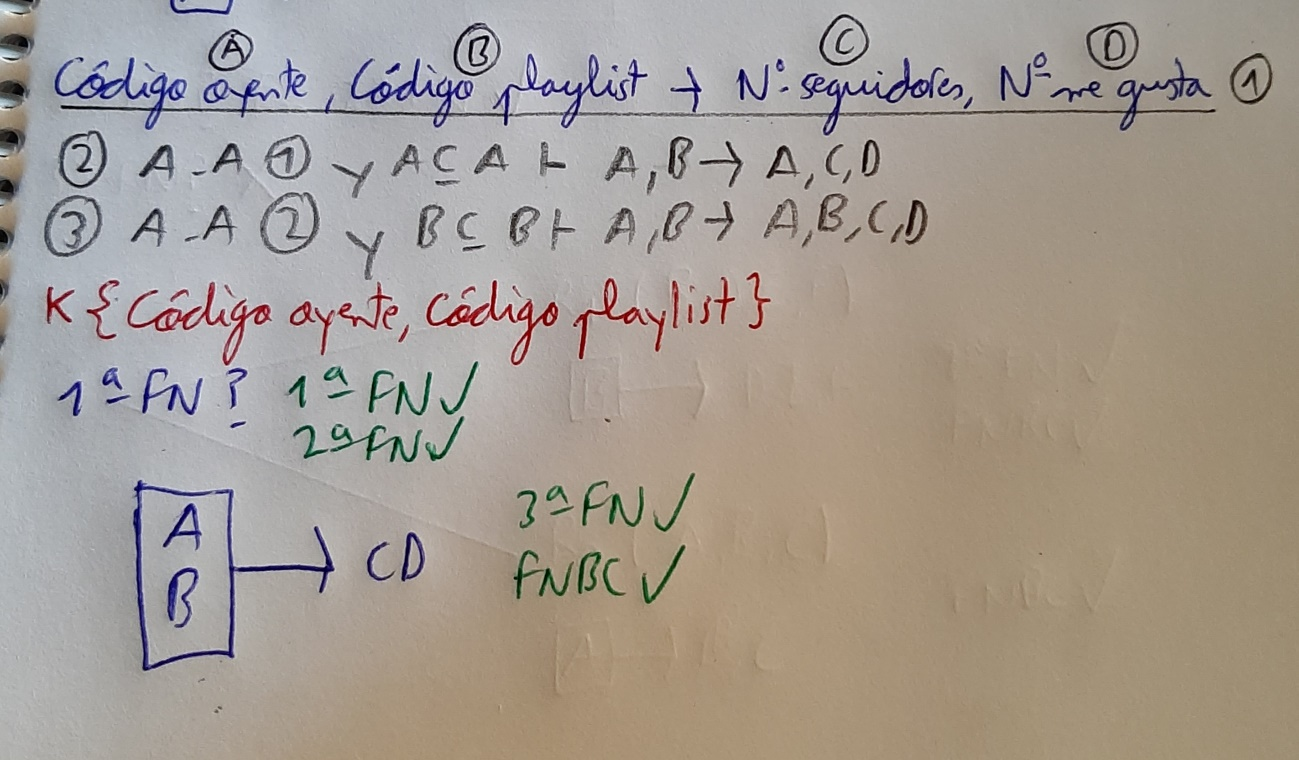 Ⓐ Ⓑ Ⓒ Ⓓ
Código oyente, Código playlist → Nº seguidores, Nº me gusta ①
② A-A ① y A ⊆ A ⊢ A,B → A,C,D
③ A-A ② y B ⊆ B ⊢ A,B → A,B,C,D
K {Código oyente, Código playlist}
1ª FN? 1ª FN✓
2ª FN✓
A
B
→ CD
3ª FN✓
FNBC✓